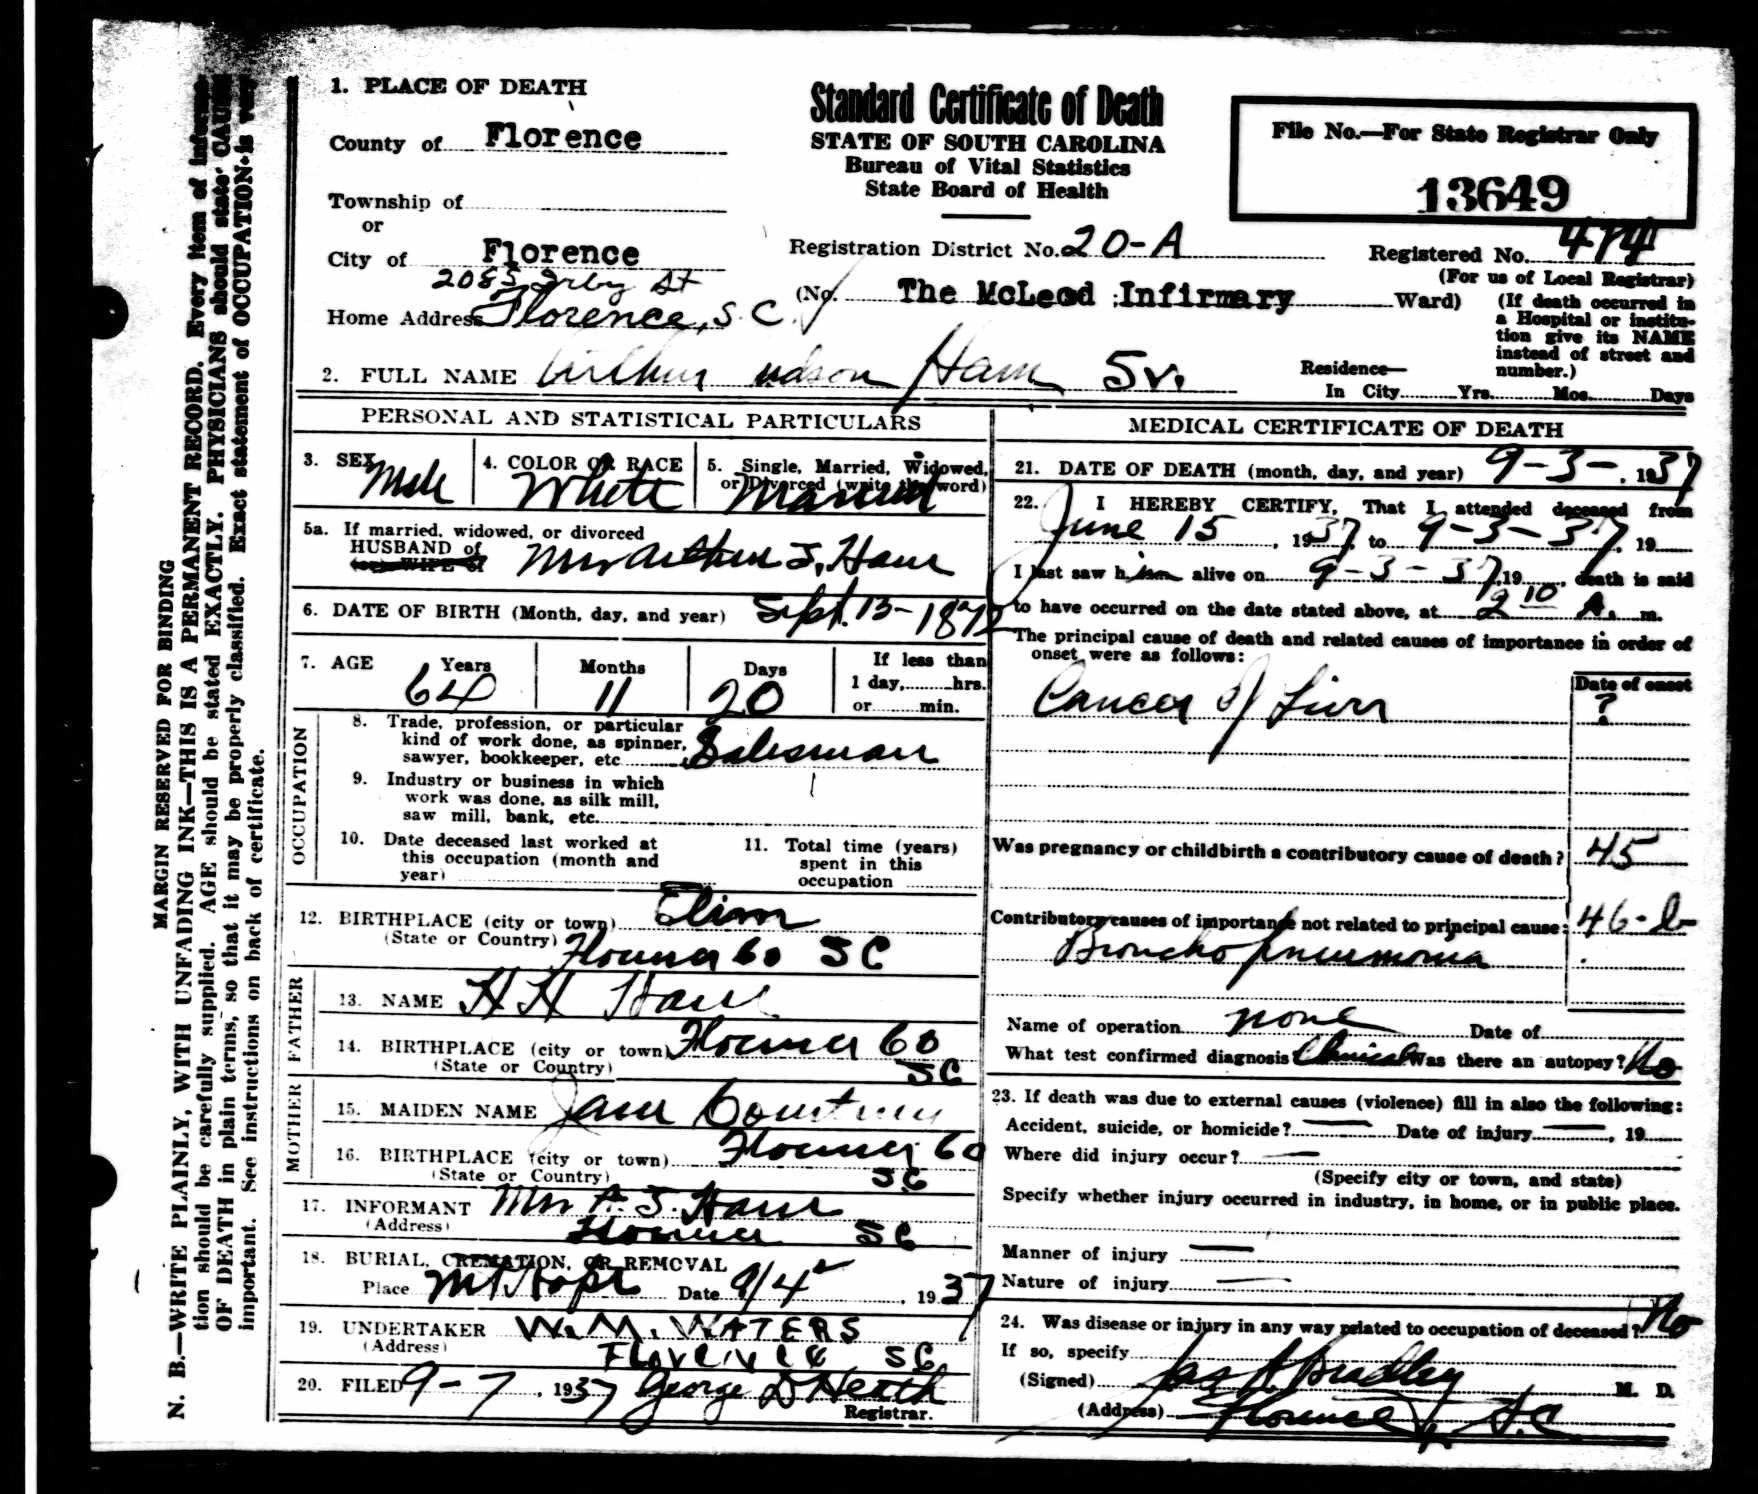 1. PLACE OF DEATH
County of Florence
Township of
or
City of Florence
Home Address Florence, S.C.
Standard Certificate of Death
STATE OF SOUTH CAROLINA
Bureau of Vital Statistics
State Board of Health
Registration District No. 20-A
(No. The McLeod Infirmary Ward)
File No.—For State Registrar Only
13649
Registered No. 474
(For us of Local Registrar)
(If death occurred in
a Hospital or institu-
tion give its NAME
instead of street and
number.)
2. FULL NAME Wilbur Judson Ham Sr.
Residence—
In City Yrs. Mos. Days
PERSONAL AND STATISTICAL PARTICULARS
3. SEX Male
4. COLOR OR RACE White
5. Single, Married, Widowed,
or Divorced (write the word)
Married
5a. If married, widowed, or divorced
HUSBAND of
(or) WIFE of
Mrs Ham
6. DATE OF BIRTH (Month, day, and year) Sept. 13-1872
7. AGE Years 64 Months 11 Days 20
If less than
1 day, hrs.
or min.
OCCUPATION
8. Trade, profession, or particular
kind of work done, as spinner,
sawyer, bookkeeper, etc. Salesman
9. Industry or business in which
work was done, as silk mill,
saw mill, bank, etc.
10. Date deceased last worked at
this occupation (month and
year)
11. Total time (years)
spent in this
occupation
12. BIRTHPLACE (city or town) Elim
(State or Country) Florence Co SC
FATHER
13. NAME H H Ham
14. BIRTHPLACE (city or town) Florence Co
(State or Country) SC
MOTHER
15. MAIDEN NAME Jane Courtney
16. BIRTHPLACE (city or town) Florence Co
(State or Country) SC
17. INFORMANT Mrs A. J. Ham
(Address) Florence SC
18. BURIAL, CREMATION, OR REMOVAL
Place Mt Hope Date 9/4, 1937
19. UNDERTAKER W.M. WATERS
(Address) FLORENCE, SC
20. FILED 9-7, 1937 George D Heath
Registrar.
MEDICAL CERTIFICATE OF DEATH
21. DATE OF DEATH (month, day, and year) 9-3-, 1937
22. I HEREBY CERTIFY, That I attended deceased from
June 15, 1937, to 9-3-37, 19
I last saw him alive on 9-3-37, 19, death is said
to have occurred on the date stated above, at 2 10 A. m.
The principal cause of death and related causes of importance in order of
onset were as follows:
Date of onset
Cancer of Liver ?
Was pregnancy or childbirth a contributory cause of death? 45
Contributory causes of importance not related to principal cause: 46-b
Broncho pneumonia
Name of operation none Date of
What test confirmed diagnosis Clinical Was there an autopsy? No
23. If death was due to external causes (violence) fill in also the following:
Accident, suicide, or homicide? — Date of injury —, 19
Where did injury occur? —
(Specify city or town, and state)
Specify whether injury occurred in industry, in home, or in public place.
Manner of injury —
Nature of injury —
24. Was disease or injury in any way related to occupation of deceased? No
If so, specify
(Signed) Jas A Bradley M. D.
(Address) Florence, S.C
MARGIN RESERVED FOR BINDING
N. B.—WRITE PLAINLY, WITH UNFADING INK—THIS IS A PERMANENT RECORD. Every item of informa-
tion should be carefully supplied. AGE should be stated EXACTLY. PHYSICIANS should state CAUSE
OF DEATH in plain terms, so that it may be properly classified. Exact statement of OCCUPATION is very
important. See instructions on back of certificate.